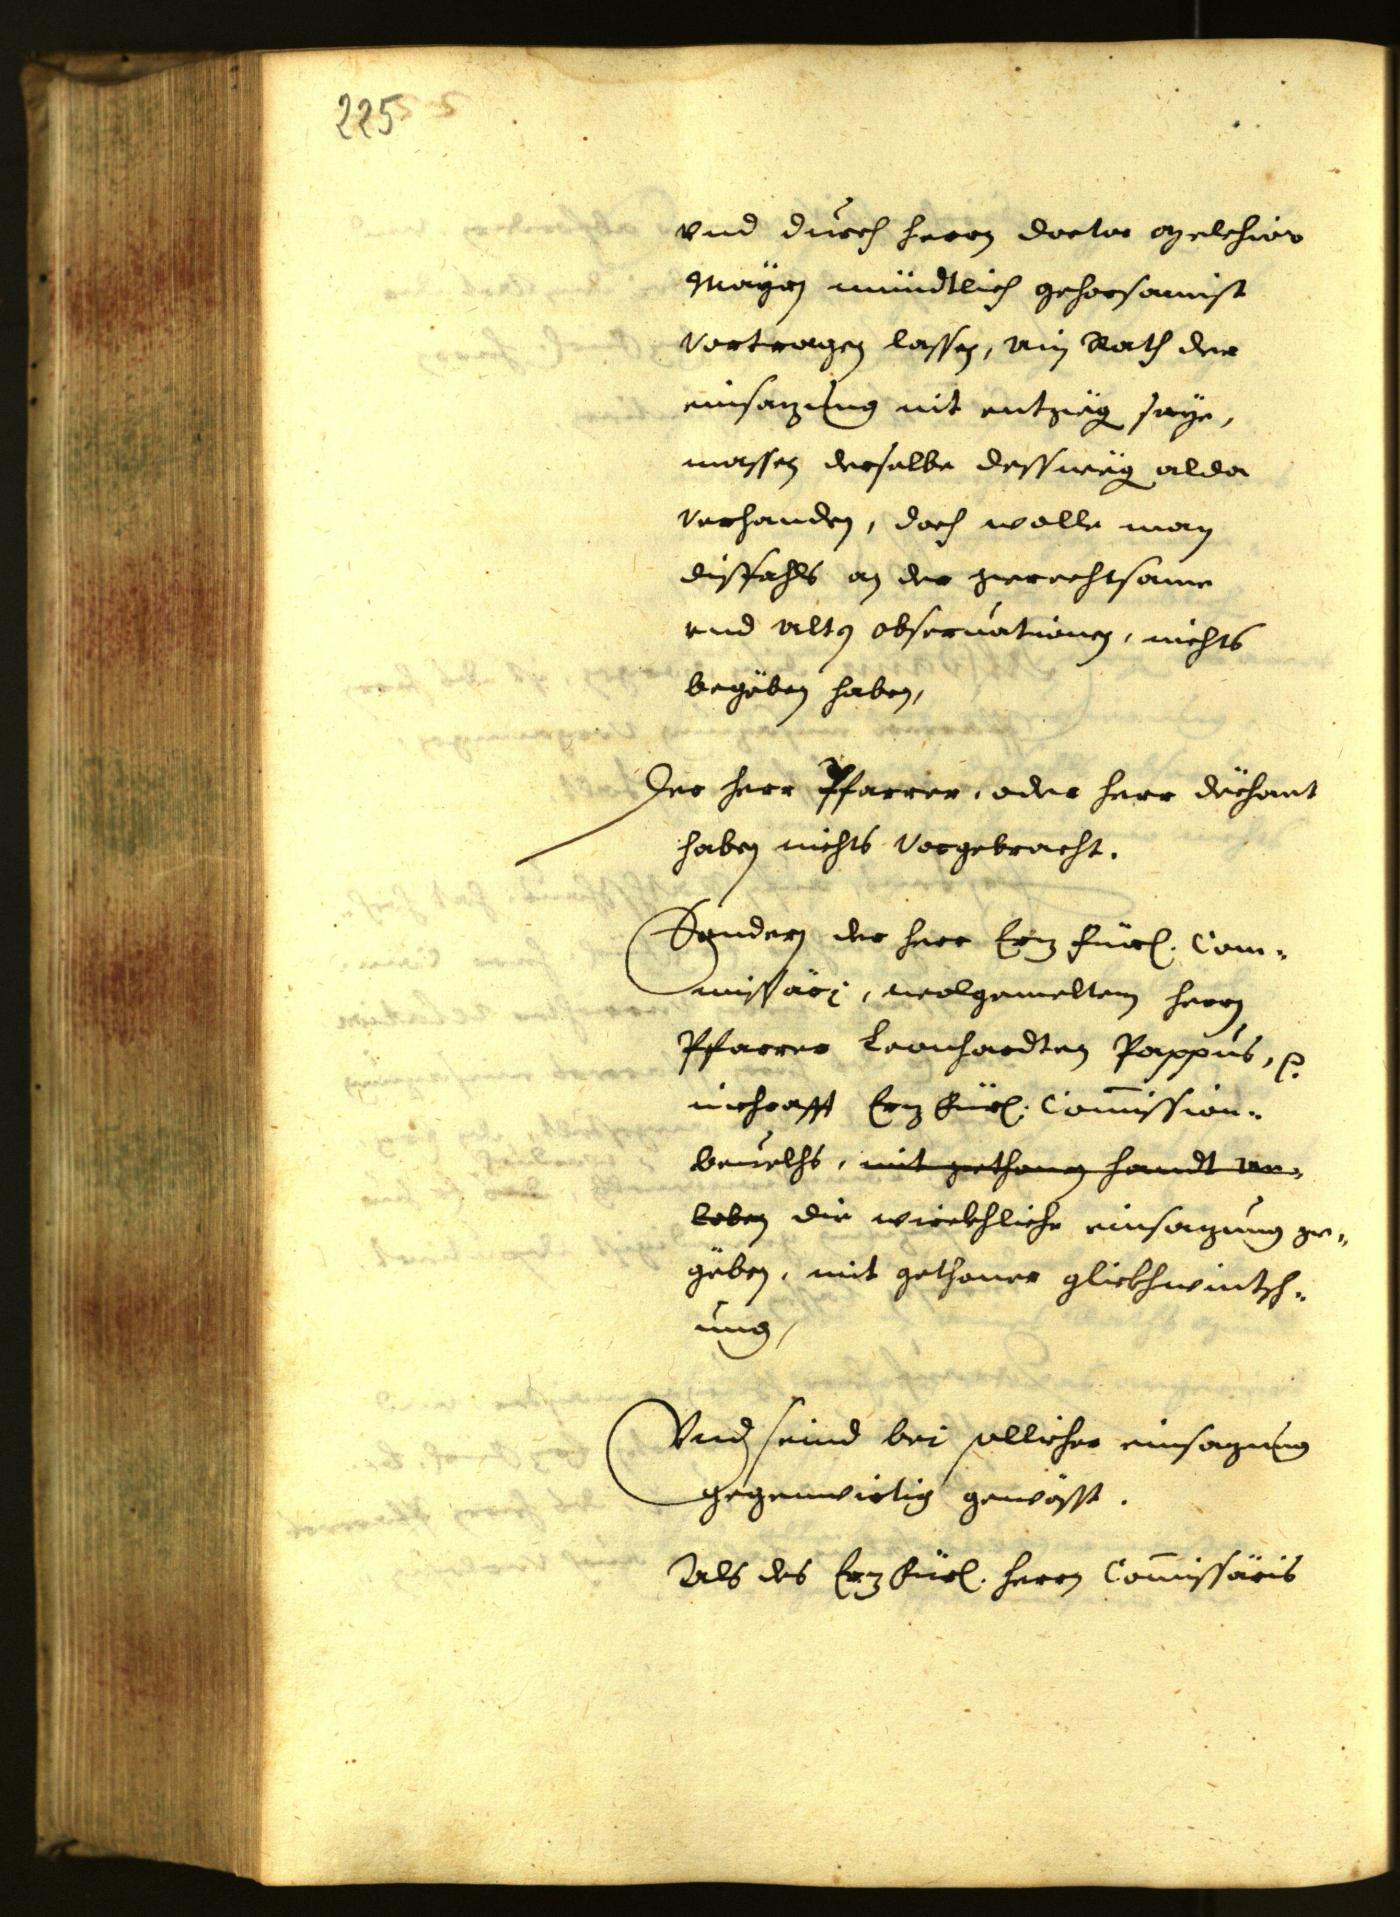 225
vnd durch herrn doctor Melchior
Mayrn mündtlich gehorsamist
Vortragen lassen, ain Rath der
einsazung nit entgeg seye,
massen derselbe desswëg alda
Verhanden, doch wolle man
dissfahls an der gerechtsame
vnd alten obseruationen, nichts
begëben haben,
Der herr Pfarrer, oder herr dëchant
haben nichts Vorgebracht.
Sondern der herr Erz Fürl. Com-
missäri, wolgemeltem herrn
Pfarrer Leonhardten Pappus, p.
inchrafft Erz Fürl. Comission-
beuelchs, mit gethonen handt an-
loben die würckhliche einsazung ge-
gëben, mit gethoner glickhwintsch-
ung,
Vnd seind bei sollicher einsazung
gegenwirtig gewësst.
Als des Erz Fürl. herrn Comissäris